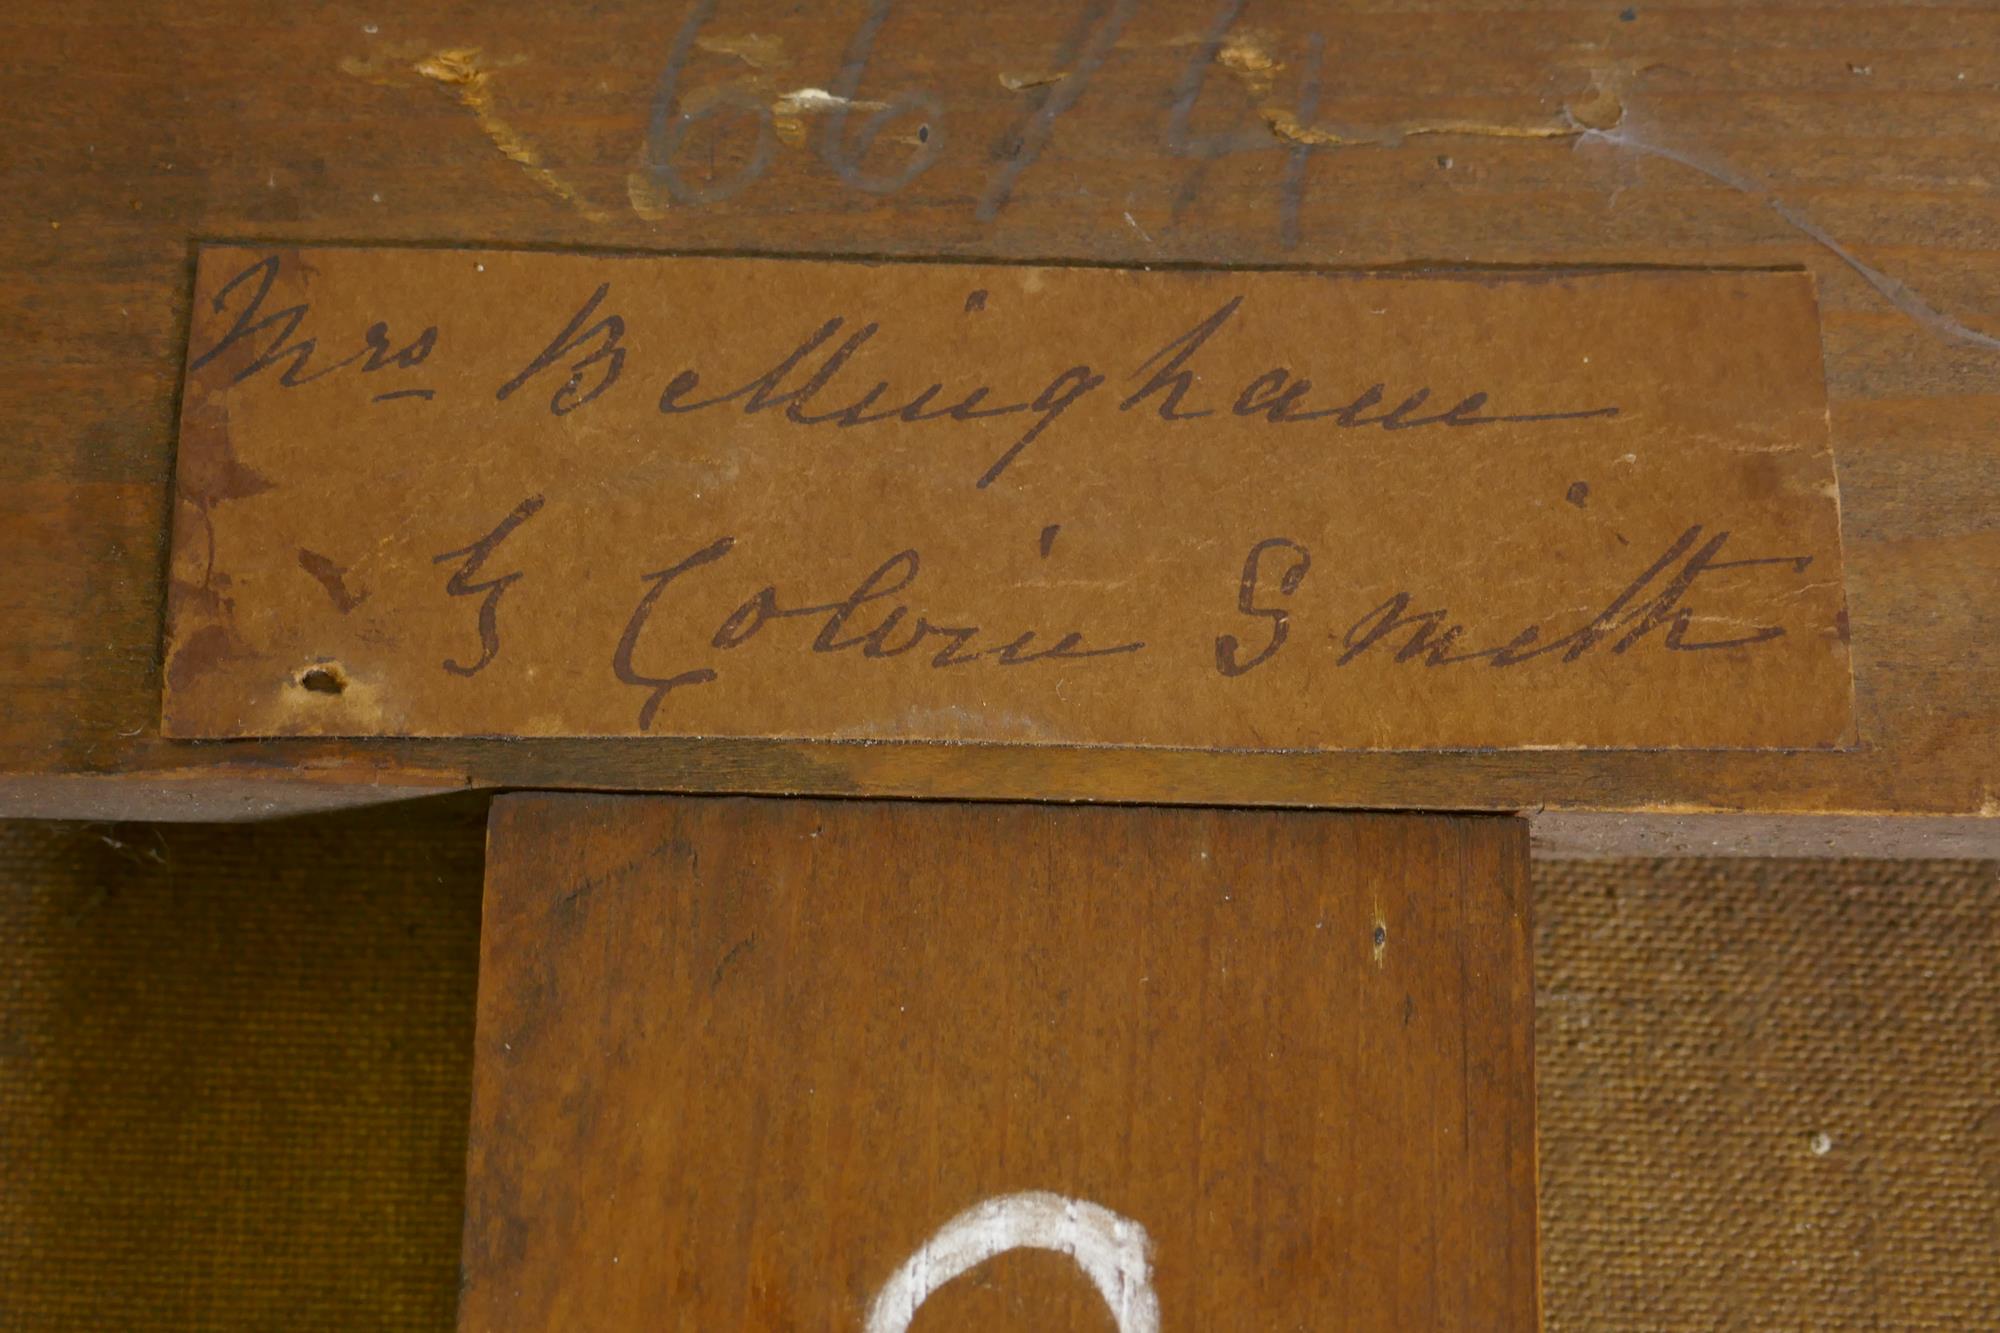 66/4
Mrs Bellingham
G Colvin Smith